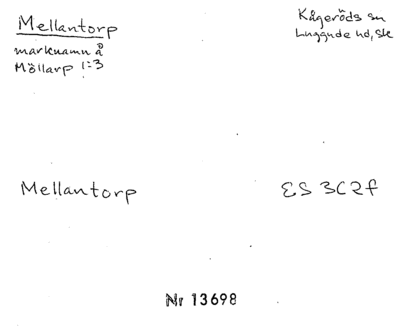 Mellantorp
marknamn å
Möllarp 1:3
Kågeröds sn
Luggude hd, Sk
Mellantorp
ES 3C2f
Nr 13698